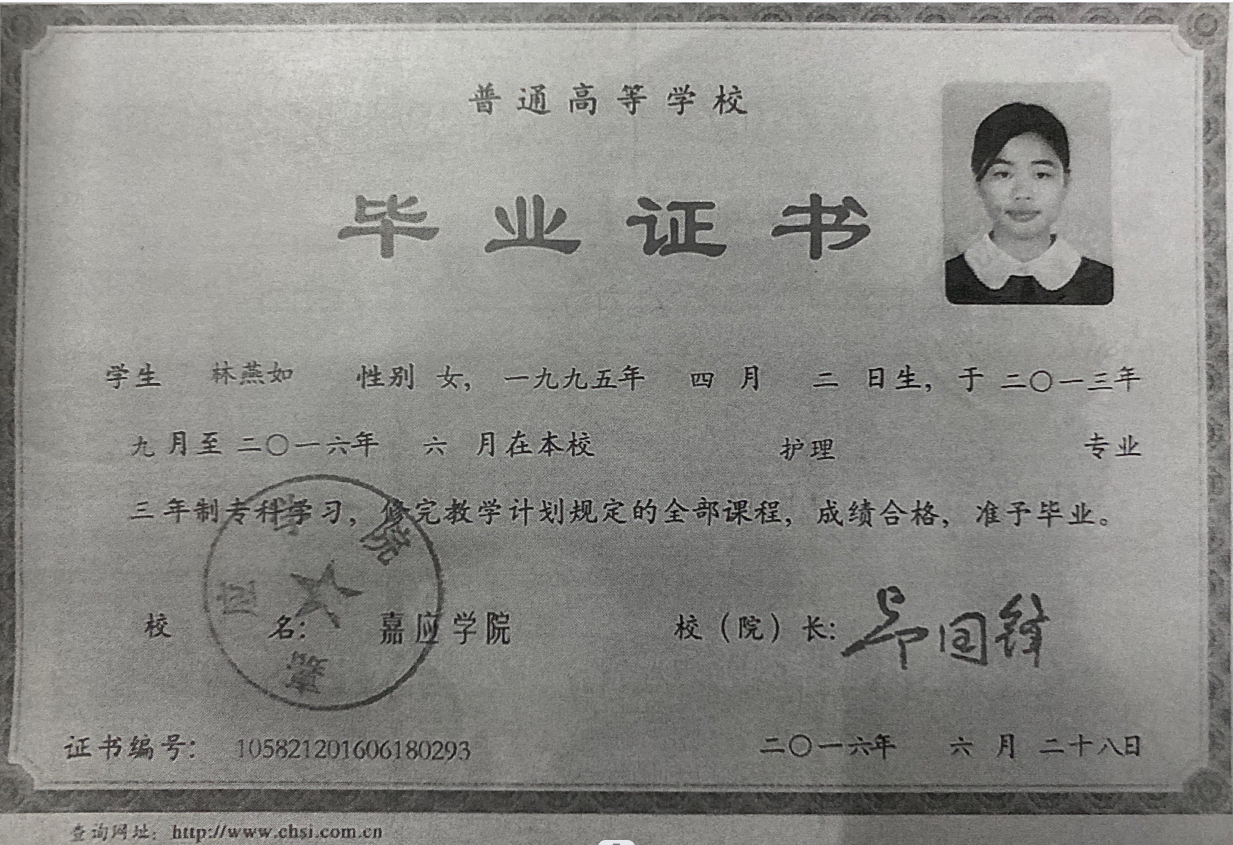 普通高等学校
毕业证书
学生 林燕如 性别 女，一九九五年 四 月 二 日生，于 二〇一三年
九 月至 二〇一六年 六 月在本校 护理 专业
三 年制专科学习，修完教学计划规定的全部课程，成绩合格，准予毕业。
校 名： 嘉应学院 校（院）长：
国锋
证书编号： 105821201606180293 二〇一六年 六 月 二十八日
查询网址：http://www.chsi.com.cn
学院
肇